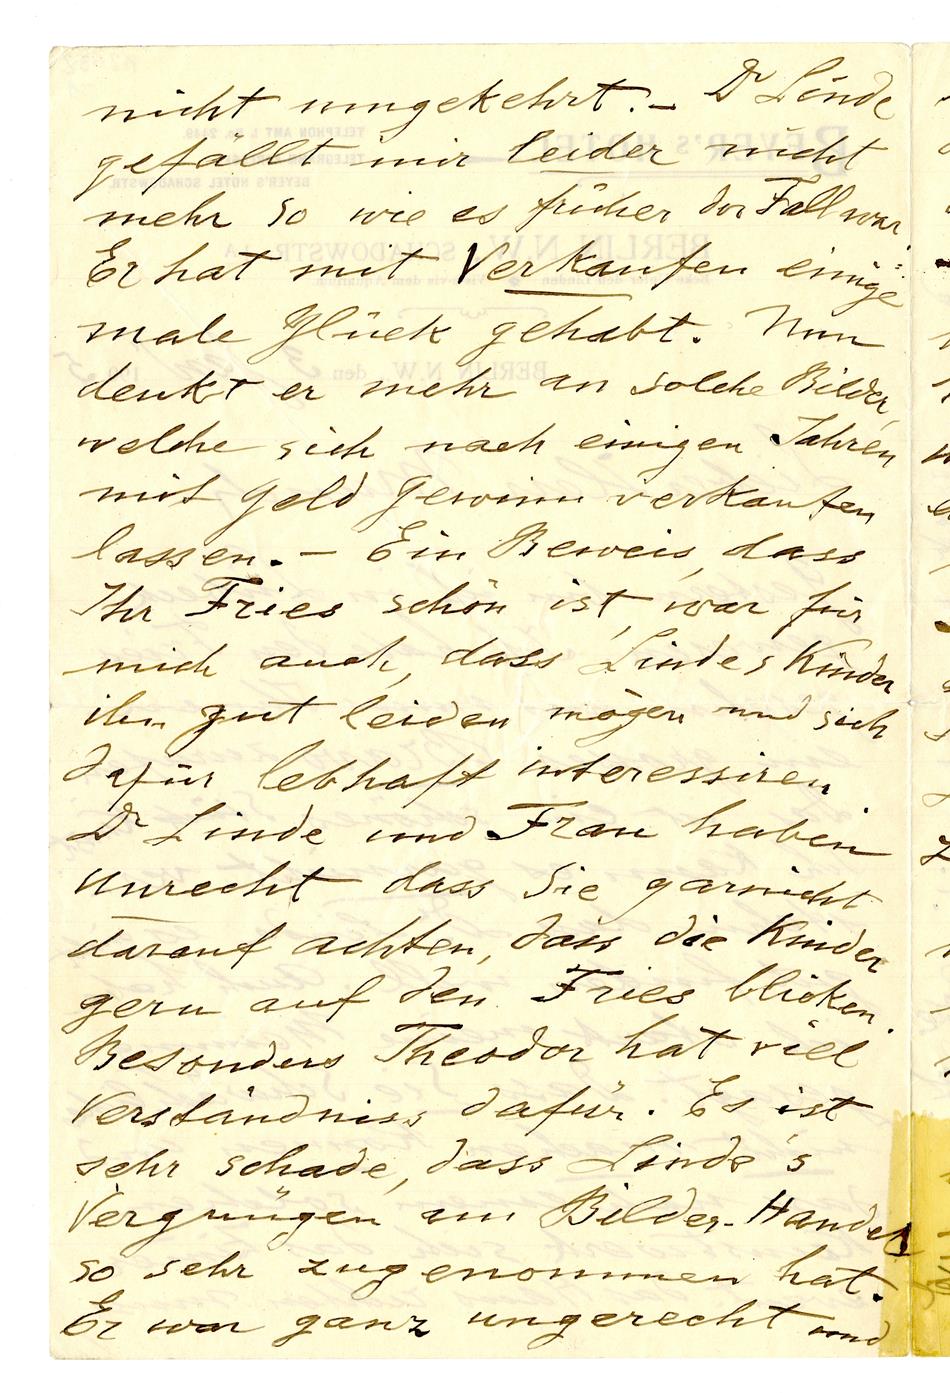 nicht umgekehrt. – Dr Linde
gefällt mir leider nicht
mehr so wie es früher der Fall war.
Er hat mit Verkaufen einige
male Glück gehabt. Nun
denkt er mehr an solche Bilder,
welche sich nach einigen Jahren
mit Geld Gewinn verkaufen
lassen. – Ein Beweis, dass
Ihr Fries schön ist, war für
mich auch, dass Lindes Kinder
ihn gut leiden mögen und sich
dafür lebhaft interessiren
Dr Linde und Frau haben
Unrecht dass Sie garnicht
darauf achten, dass die Kinder
gern auf den Fries blicken.
Besonders Theodor hat viel
Verständniss dafür. Es ist
sehr schade, dass Linde's
Vergnügen am Bilder-Handel
so sehr zugenommen hat.
Er war ganz ungerecht und